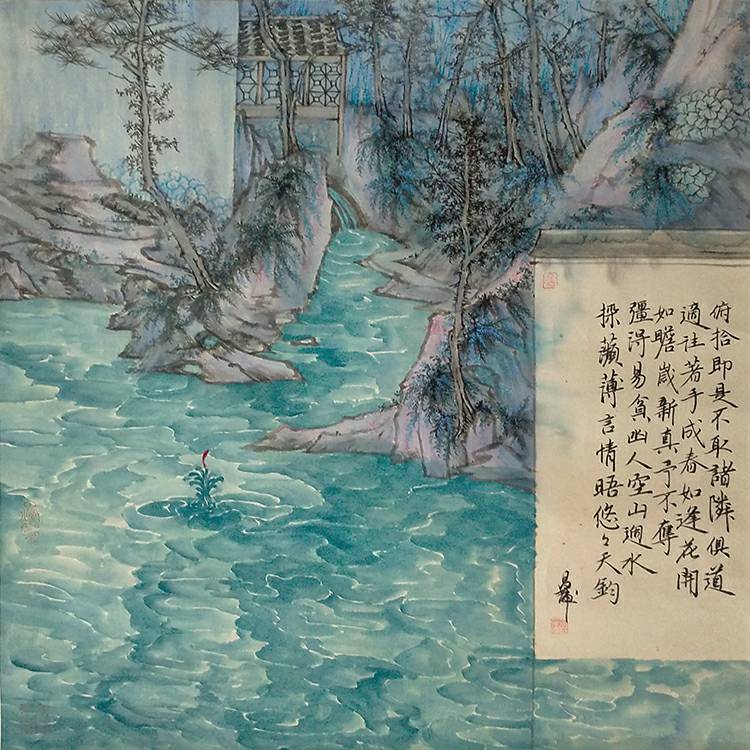 俯拾即是不取諸隣俱道
適往著手成春如逢花開
如瞻歲新真予不奪
彊淂易貧幽人空山過水
採蘋薄言情晤悠々天鈞